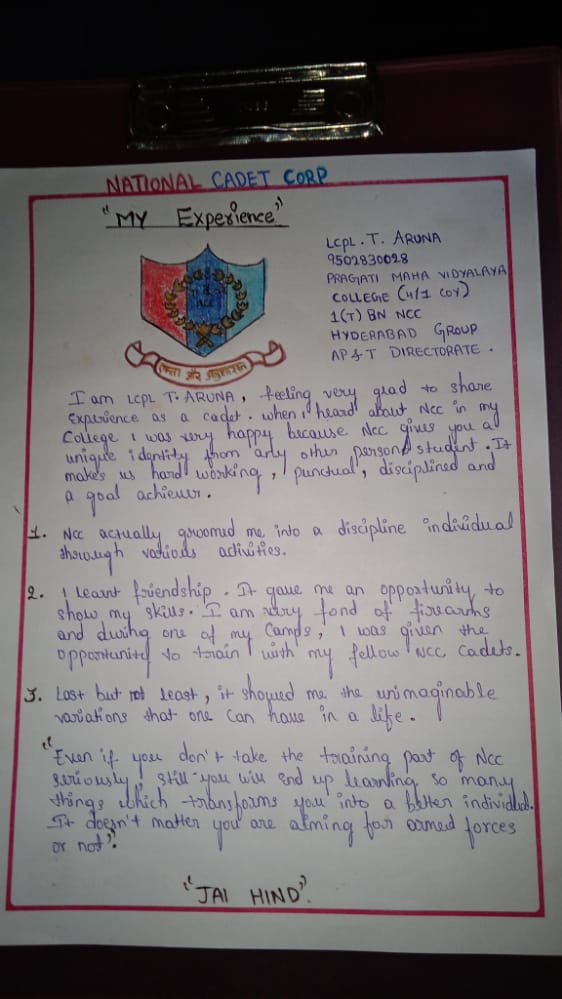 NATIONAL CADET CORP
"MY Experience"
LCPL. T. ARUNA
9502830028
PRAGATI MAHA VIDYALAYA
COLLEGE (4/1 COY)
1(T) BN NCC
HYDERABAD GROUP
AP & T DIRECTORATE.
NCC
एकता और अनुशासन
I am LCPL T. ARUNA, feeling very glad to share
Experience as a cadet. when i heard about NCC in my
College I was very happy because NCC gives you a
unique identity from any other person/student. It
makes us hard working, punctual, disciplined and
a goal achiever.
1. NCC actually groomed me into a discipline individual
through various activities.
2. I learnt friendship. It gave me an opportunity to
show my skills. I am very fond of firearms
and during one of my Camps, I was given the
opportunity to train with my fellow NCC Cadets.
3. Last but not least, it showed me the unimaginable
variations that one can have in a life.
"Even if you don't take the training part of NCC
seriously, still you will end up learning so many
things which transforms you into a better individual.
It doesn't matter you are aiming for armed forces
or not".
"JAI HIND".